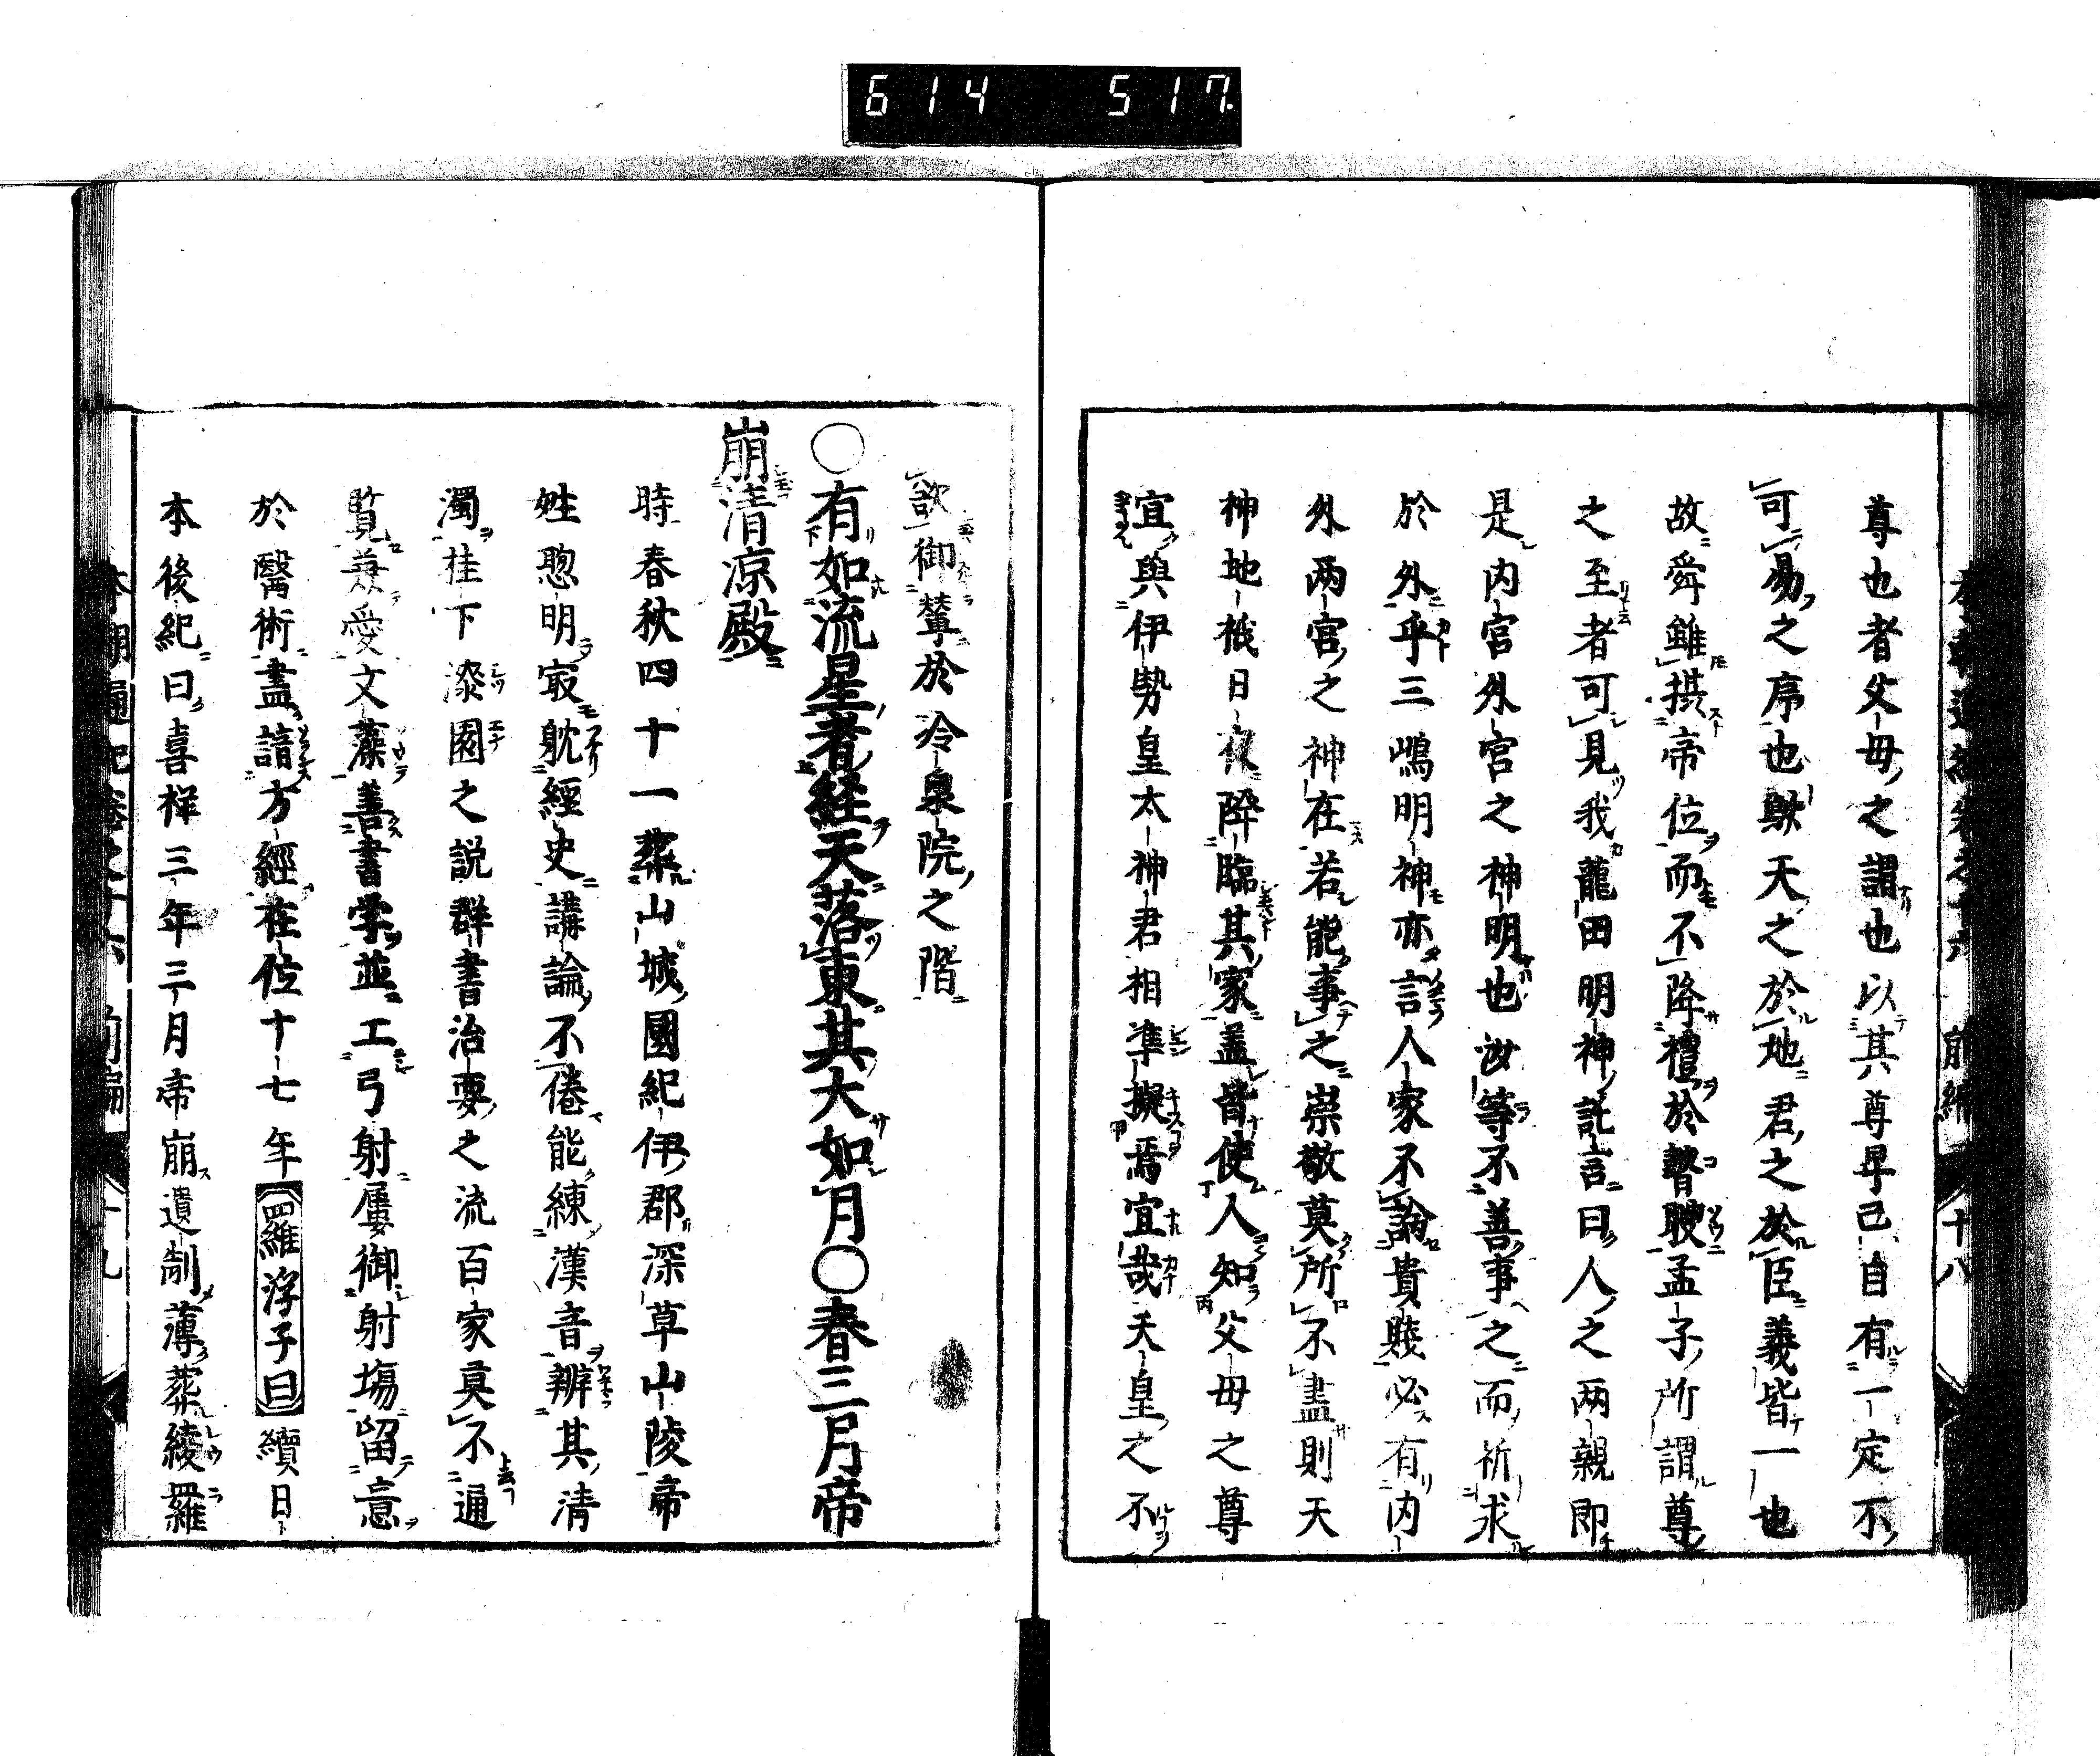 614 517
本朝通紀卷之十六 前編 十八
尊也者父母之謂也以其尊卑已自有一定不
可易之序也歟天之於地君之於臣義皆一也
故舜雖摂帝位而不降禮於瞽瞍孟子所謂尊
之至者可見我龍田明神託言曰人之両親即
是内宮外宮之神明也汝等不善事之而祈求
於外乎三嶋明神亦言人家不論貴賤必有内
外両宮之神在若能事之崇敬莫所不盡則天
神地祇日夜降臨其家盖皆使人知父母之尊
宜與伊勢皇太神君相準擬焉宜哉天皇之不
欲御輦於冷泉院之階
○有如流星者経天落東其大如月○春三月帝
崩清凉殿
時春秋四十一葬山城國紀伊郡深草山陵帝
姓聡明㝡躭經史講論不倦能練漢音辨其清
濁桂下漆園之説群書治要之流百家莫不通
覧兼愛文藻善書学並工弓射屢御射塲留意
於醫術盡諳方經在位十七年羅浮子曰續日
本後紀曰喜祥三年三月帝崩遺制薄葬綾羅
本朝通紀卷之十六 前編 十九